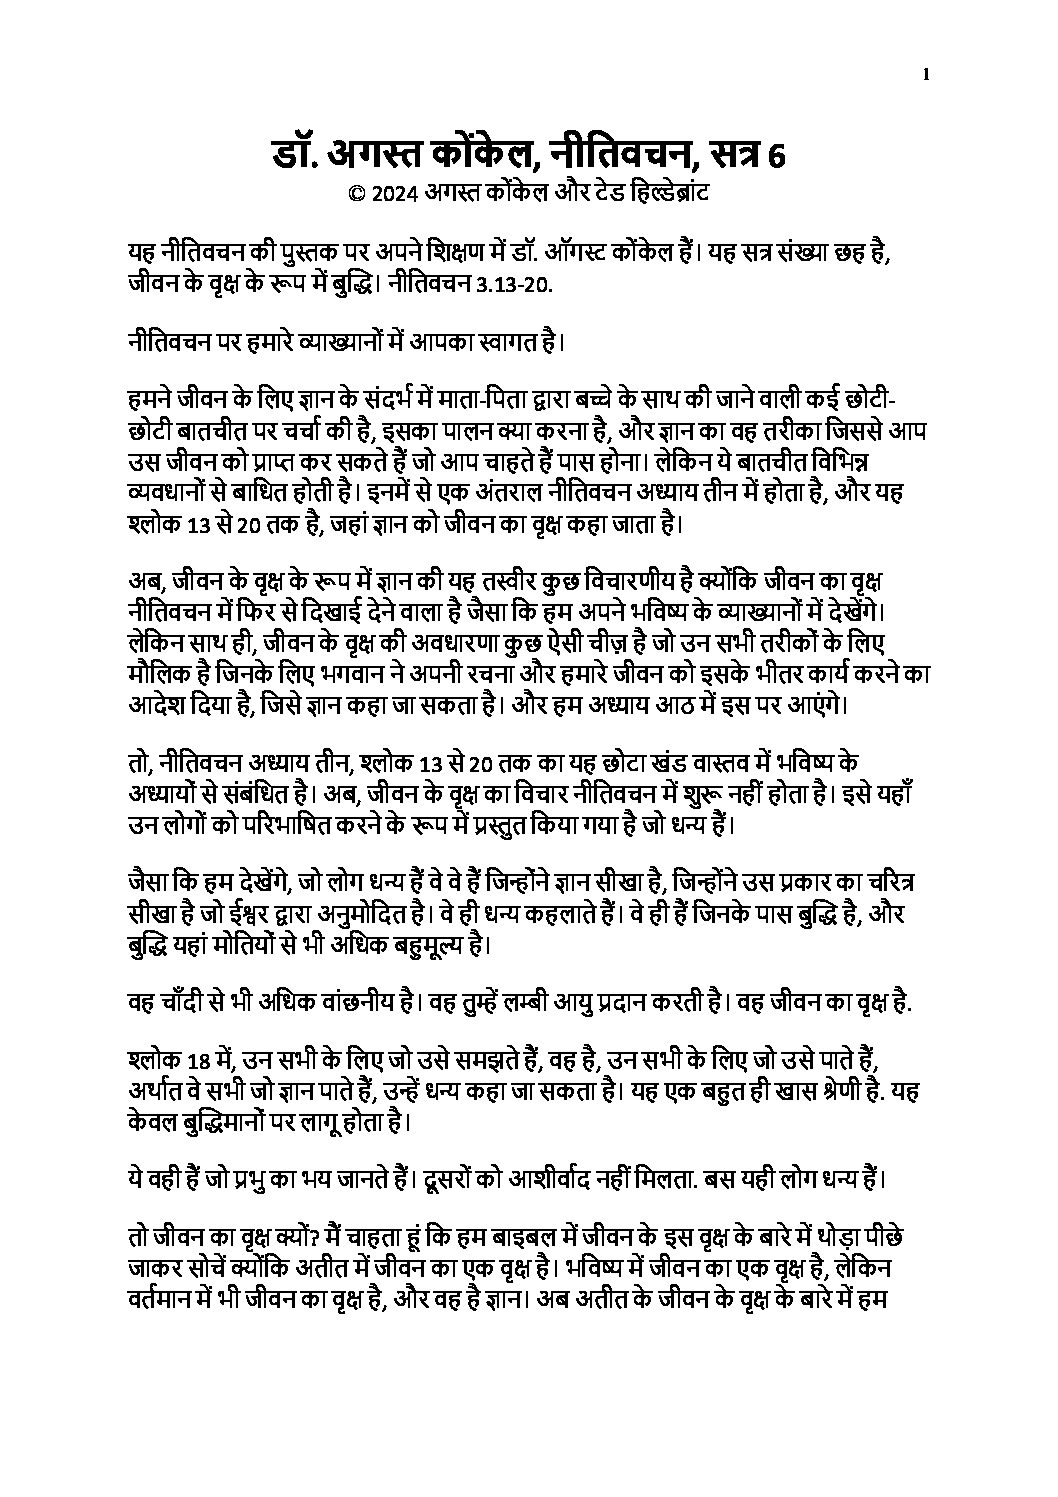 1
डॉ. अगस्त कोंकेल, नीतिवचन, सत्र 6
© 2024 अगस्त कोंकेल और टेड हिल्डेब्रांट
यह नीतिवचन की पुस्तक पर अपने शिक्षण में डॉ. ऑगस्ट कोंकेल हैं। यह सत्र संख्या छह है,
जीवन के वृक्ष के रूप में बुद्धि। नीतिवचन 3.13-20.
नीतिवचन पर हमारे व्याख्यानों में आपका स्वागत है।
हमने जीवन के लिए ज्ञान के संदर्भ में माता-पिता द्वारा बच्चे के साथ की जाने वाली कई छोटी-
छोटी बातचीत पर चर्चा की है, इसका पालन क्या करना है, और ज्ञान का वह तरीका जिससे आप
उस जीवन को प्राप्त कर सकते हैं जो आप चाहते हैं पास होना। लेकिन ये बातचीत विभिन्न
व्यवधानों से बाधित होती है। इनमें से एक अंतराल नीतिवचन अध्याय तीन में होता है, और यह
श्लोक 13 से 20 तक है, जहां ज्ञान को जीवन का वृक्ष कहा जाता है।
अब, जीवन के वृक्ष के रूप में ज्ञान की यह तस्वीर कुछ विचारणीय है क्योंकि जीवन का वृक्ष
नीतिवचन में फिर से दिखाई देने वाला है जैसा कि हम अपने भविष्य के व्याख्यानों में देखेंगे।
लेकिन साथ ही, जीवन के वृक्ष की अवधारणा कुछ ऐसी चीज़ है जो उन सभी तरीकों के लिए
मौलिक है जिनके लिए भगवान ने अपनी रचना और हमारे जीवन को इसके भीतर कार्य करने का
आदेश दिया है, जिसे ज्ञान कहा जा सकता है। और हम अध्याय आठ में इस पर आएंगे।
तो, नीतिवचन अध्याय तीन, श्लोक 13 से 20 तक का यह छोटा खंड वास्तव में भविष्य के
अध्यायों से संबंधित है। अब, जीवन के वृक्ष का विचार नीतिवचन में शुरू नहीं होता है। इसे यहाँ
उन लोगों को परिभाषित करने के रूप में प्रस्तुत किया गया है जो धन्य हैं।
जैसा कि हम देखेंगे, जो लोग धन्य हैं वे वे हैं जिन्होंने ज्ञान सीखा है, जिन्होंने उस प्रकार का चरित्र
सीखा है जो ईश्वर द्वारा अनुमोदित है। वे ही धन्य कहलाते हैं। वे ही हैं जिनके पास बुद्धि है, और
बुद्धि यहां मोतियों से भी अधिक बहुमूल्य है।
वह चाँदी से भी अधिक वांछनीय है। वह तुम्हें लम्बी आयु प्रदान करती है। वह जीवन का वृक्ष है.
श्लोक 18 में, उन सभी के लिए जो उसे समझते हैं, वह है, उन सभी के लिए जो उसे पाते हैं,
अर्थात वे सभी जो ज्ञान पाते हैं, उन्हें धन्य कहा जा सकता है। यह एक बहुत ही खास श्रेणी है. यह
केवल बुद्धिमानों पर लागू होता है।
ये वही हैं जो प्रभु का भय जानते हैं। दूसरों को आशीर्वाद नहीं मिलता. बस यही लोग धन्य हैं।
तो जीवन का वृक्ष क्यों? मैं चाहता हूं कि हम बाइबल में जीवन के इस वृक्ष के बारे में थोड़ा पीछे
जाकर सोचें क्योंकि अतीत में जीवन का एक वृक्ष है। भविष्य में जीवन का एक वृक्ष है, लेकिन
वर्तमान में भी जीवन का वृक्ष है, और वह है ज्ञान। अब अतीत के जीवन के वृक्ष के बारे में हम